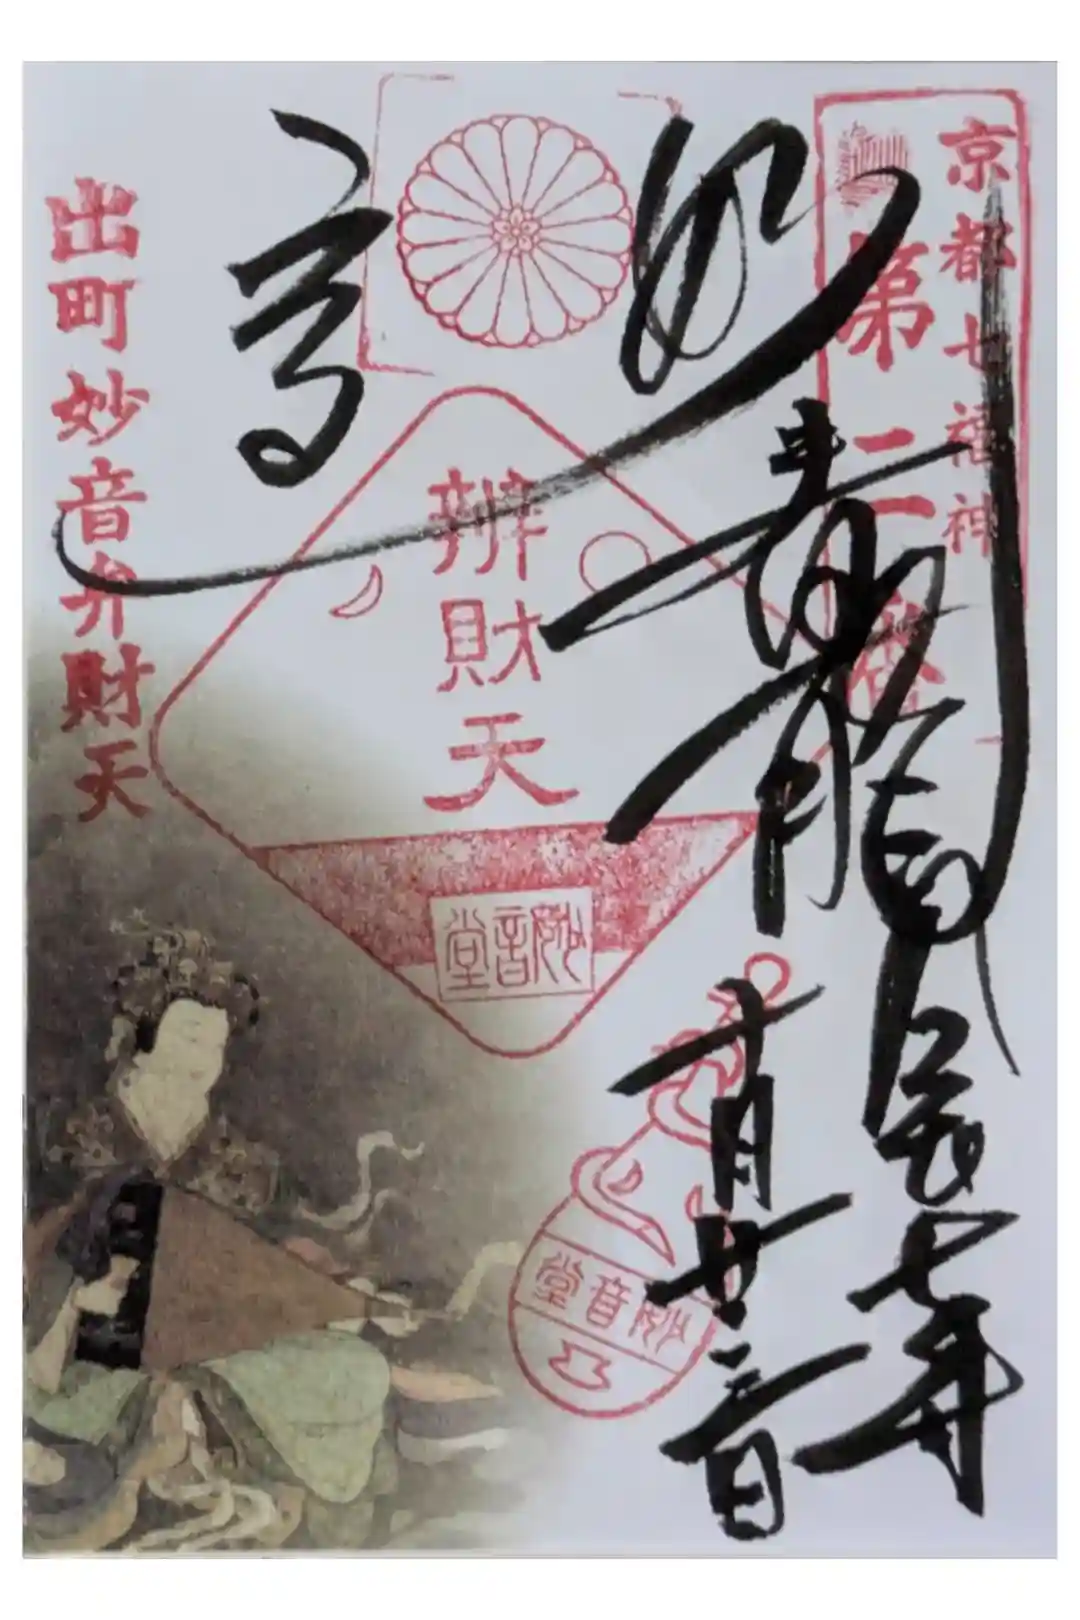 京都七福神
第二番
妙音
青龍
七年
辨財天
妙音堂
妙音堂
出町妙音弁財天